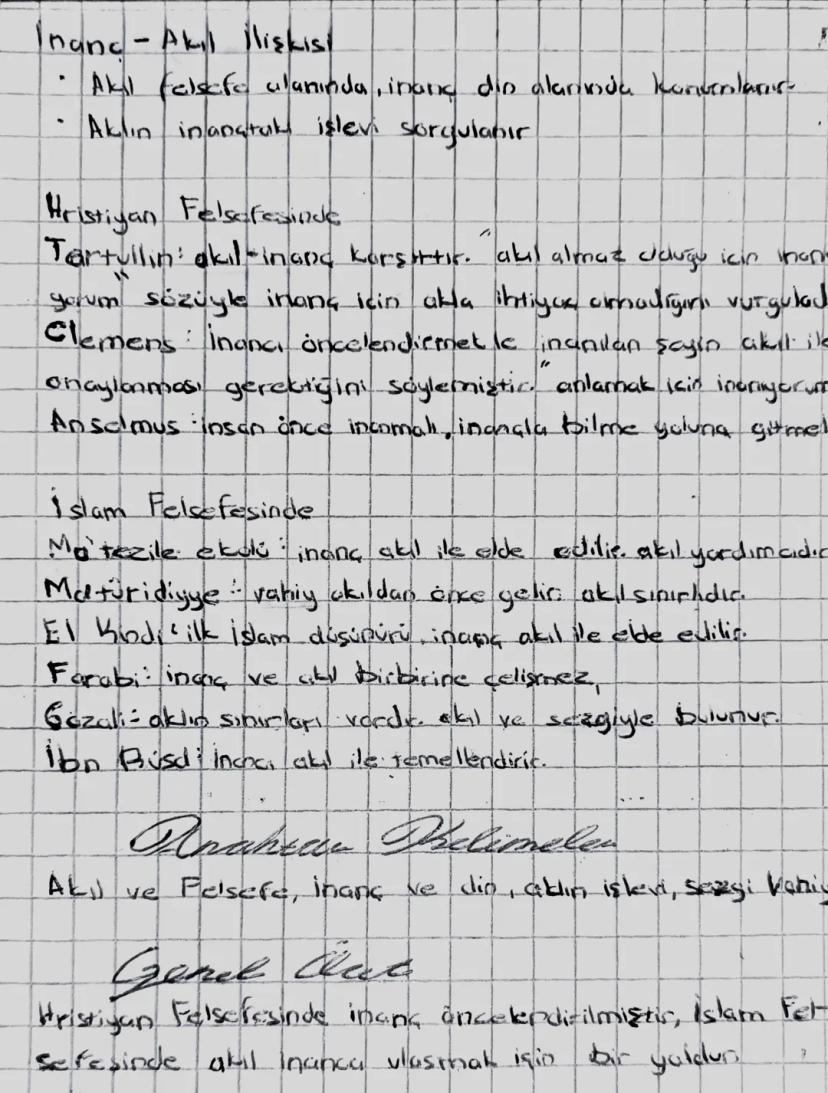 İnanç - Akıl İlişkisi
· Akıl felsefe alanında, inanç din alanında konumlanır.
· Aklın inançtaki işlevi sorgulanır
Hristiyan Felsefesinde
Tertyllin: akıl-inanç karşıttır. "akıl almaz olduğu için inanı
yorum" sözüyle inanç için akla ihtiyaç olmadığını vurgulad
Clemens: İnancı öncelendirmekle inanılan şeyin akıl ile
onaylanması gerektiğini söylemiştir. "anlamak için inanıyorum
Anselmus: insan önce inanmalı, inançla bilme yoluna gitmel
İslam Felsefesinde
Mo'tezile ekolü: inanç akıl ile elde edilir. akıl yardımcıdır
Matüridiyye: vahiy akıldan önce gelir. akıl sınırlıdır.
El Kindi: ilk İslam düşünürü, inanç akıl ile elde edilir.
Farabi: inanç ve akıl birbirine çelişmez,
Gazali: aklın sınırları vardır. akıl ve sezgiyle bulunur.
İbn Rüşd: İnancı akıl ile temellendirir.
Anahtar Kelimeler
Akıl ve Felsefe, inanç ve din, aklın işlevi, sezgi Vahiy
Genel Özet
Hristiyan Felsefesinde inanç öncelendirilmiştir, İslam Fel-
sefesinde akıl inanca ulaşmak için bir yoldur.